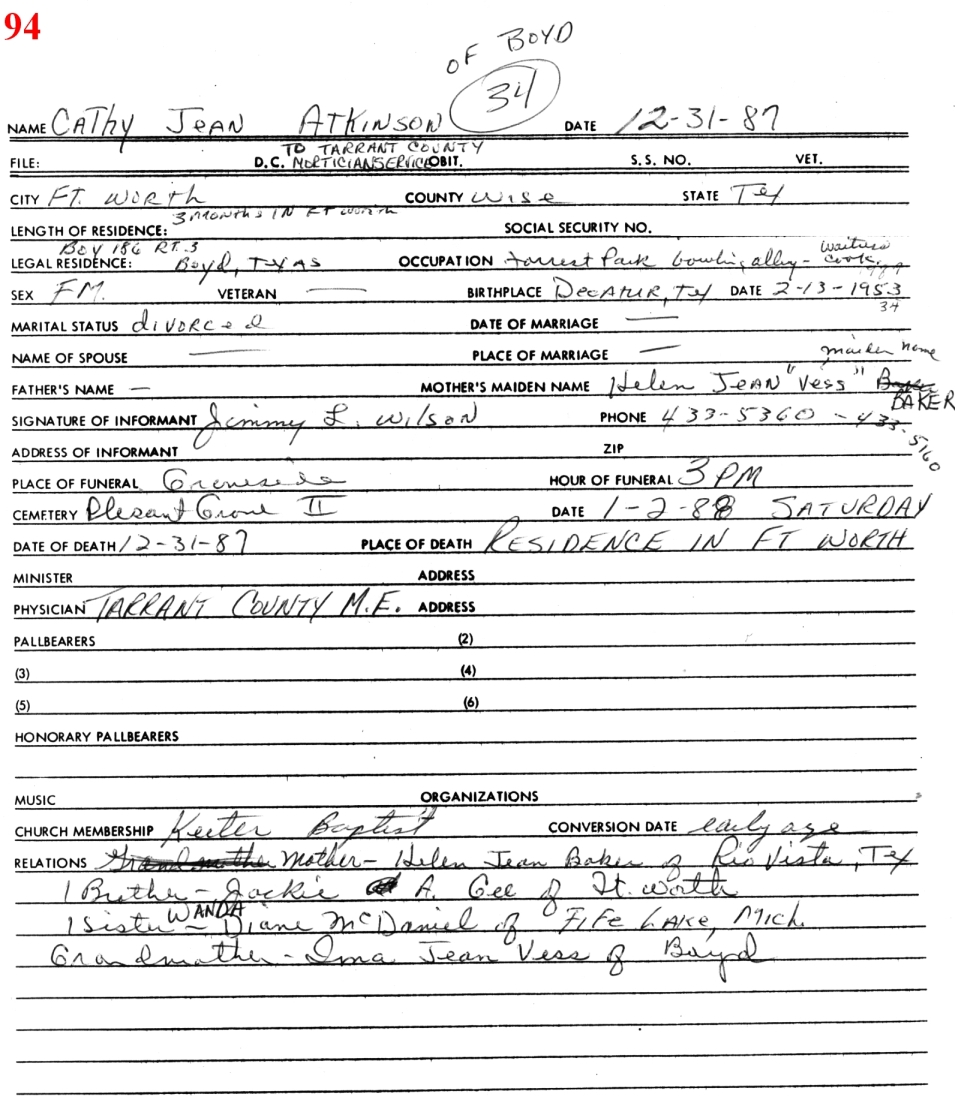 94
OF BOYD
34
NAME CATHY JEAN ATKINSON DATE 12-31-87
TO TARRANT COUNTY
FILE: D.C. MORTICIAN SERVICE OBIT. S.S. NO. VET.
CITY FT. WORTH COUNTY Wise STATE Tex
3 MONTHS IN FT WORTH
LENGTH OF RESIDENCE: SOCIAL SECURITY NO.
Box 186 RT. 3 waitress
LEGAL RESIDENCE: Boyd, TEXAS OCCUPATION Forrest Park bowling alley - cook
SEX FM. VETERAN — BIRTHPLACE DECATUR, TEX DATE 2-13-1953
34
MARITAL STATUS divorced DATE OF MARRIAGE —
NAME OF SPOUSE — PLACE OF MARRIAGE — maiden name
FATHER'S NAME — MOTHER'S MAIDEN NAME Helen JEAN "Vess" BAKER
SIGNATURE OF INFORMANT Jimmy L. Wilson PHONE 433-5360 - 433-5160
ADDRESS OF INFORMANT ZIP
PLACE OF FUNERAL Graveside HOUR OF FUNERAL 3 PM
CEMETERY Plesant Grove II DATE 1-2-88 SATURDAY
DATE OF DEATH 12-31-87 PLACE OF DEATH RESIDENCE IN FT WORTH
MINISTER ADDRESS
PHYSICIAN TARRANT COUNTY M.E. ADDRESS
PALLBEARERS (2)
(3) (4)
(5) (6)
HONORARY PALLBEARERS
MUSIC ORGANIZATIONS
CHURCH MEMBERSHIP Keeter Baptist CONVERSION DATE early age
RELATIONS Grandmother Mother - Helen Jean Baker of Rio Vista, Tex
1 Brother - Jackie A. Gee of Ft. Worth
WANDA
1 Sister - Diane McDaniel of FIFE LAKE, Mich.
Grandmother - Ima Jean Vess of Boyd